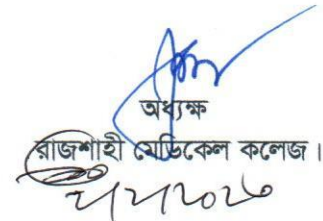 অধ্যক্ষ
রাজশাহী মেডিকেল কলেজ।